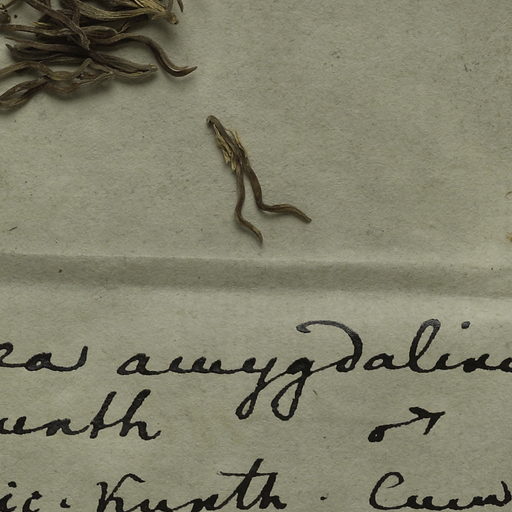 ra amygdalina
unth ♂
ic. Kunth. Cum